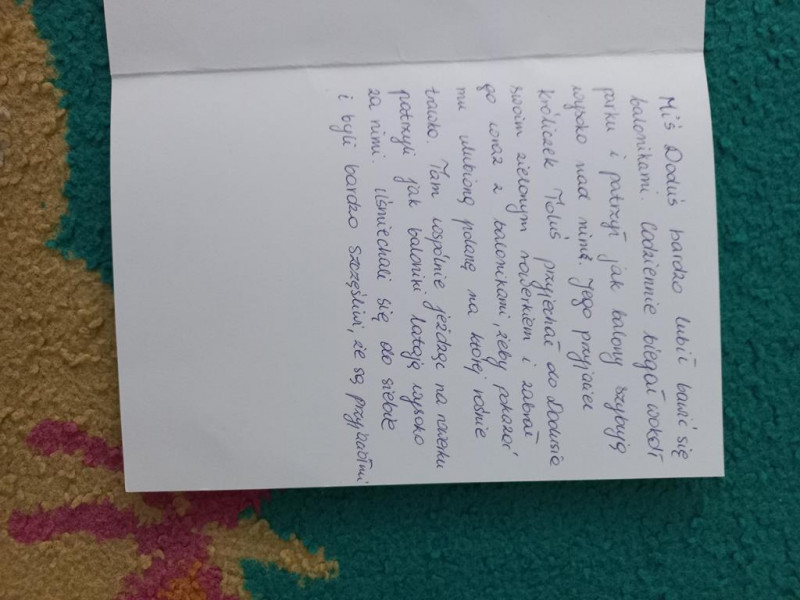 Miś Doduś bardzo lubił bawić się
balonikami. Codziennie biegał wokół
parku i patrzył jak balony szybują
wysoko nad nim. Jego przyjaciel
króliczek Toluś przyjechał do Dodusia
swoim zielonym rowerkiem i zabrał
go wraz z balonikami, żeby pokazać
mu ulubioną polanę na której rośnie
trawka. Tam wspólnie jeżdżąc na rowerku
patrzyli jak baloniki latają wysoko
za nimi. Uśmiechali się do siebie
i byli bardzo szczęśliwi, że są przyjaciółmi